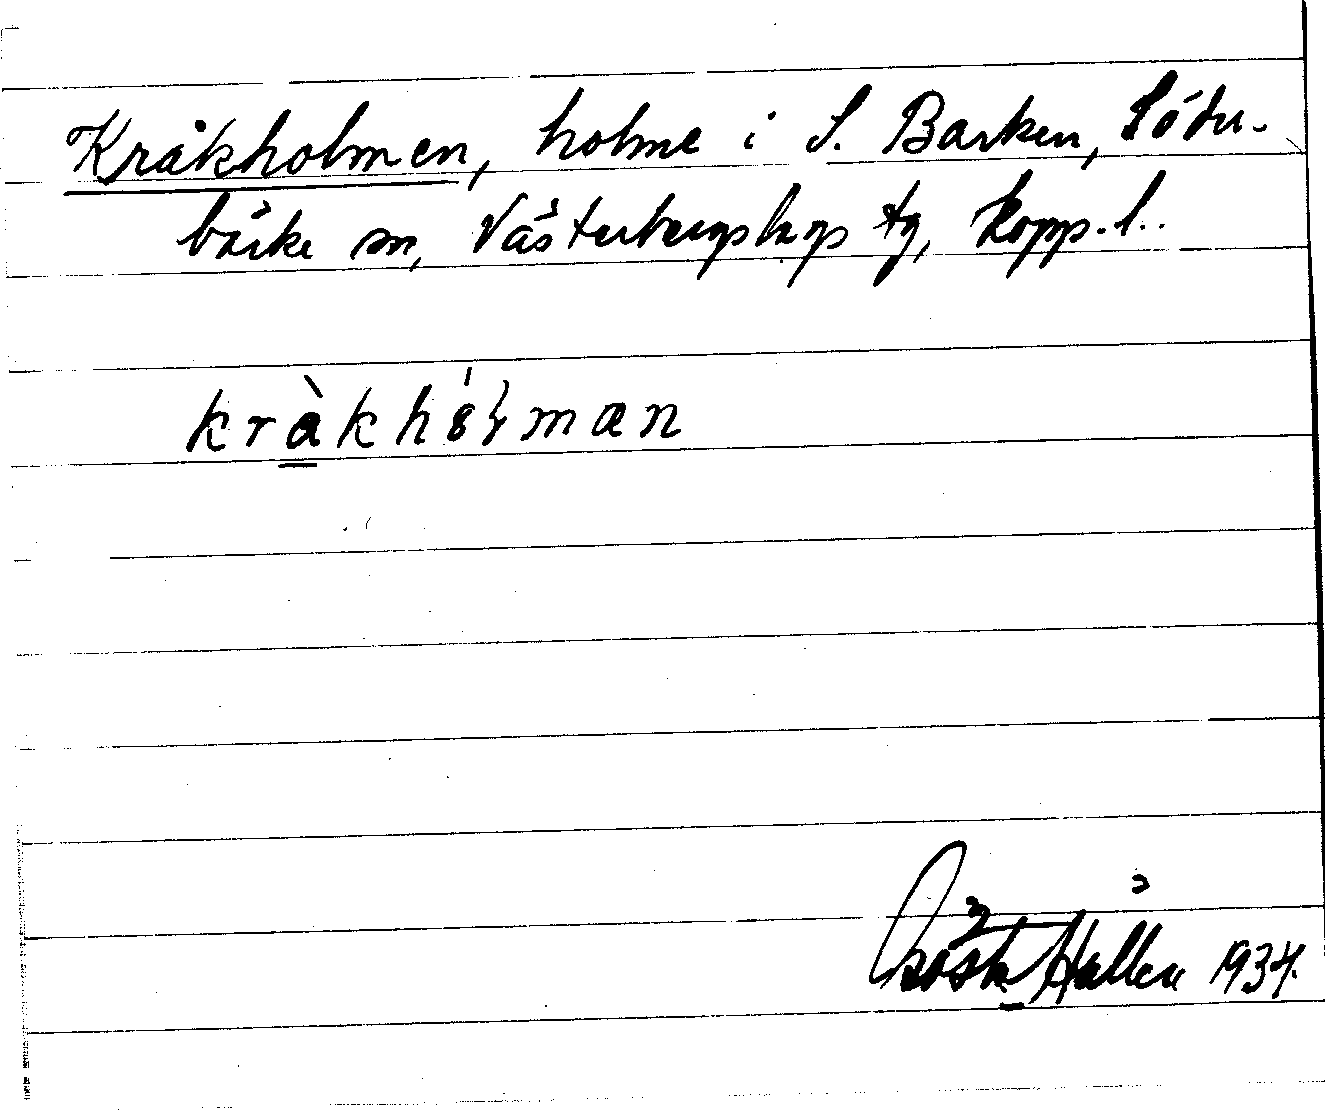 Kråkholmen, holme i S. Barken, Söder-
bärke sn, Västerbergslags tg, Kopp. l.
kràkhólmæn
Gösta Hallén 1934.